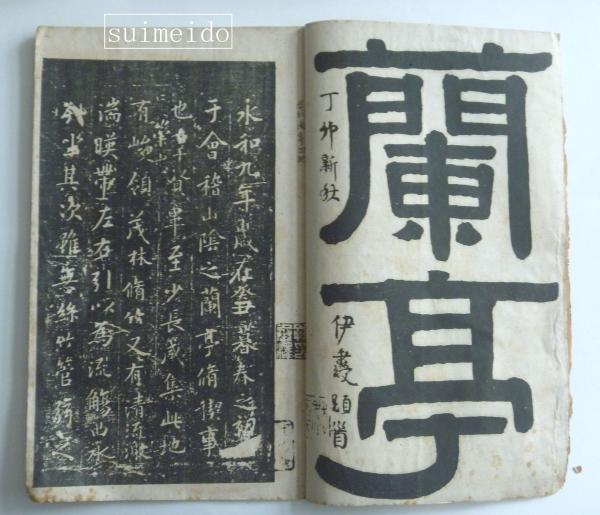 suimeido
蘭亭
丁卯新秋
伊𡠗題眉
永和九年歲在癸丑暮春之初
于會稽山陰之蘭亭脩禊事
也羣賢畢至少長咸集此地
有崇山
峻領茂林脩竹又有清流激
湍暎帶左右引以為流觴曲水
列坐其次雖無絲竹管弦之